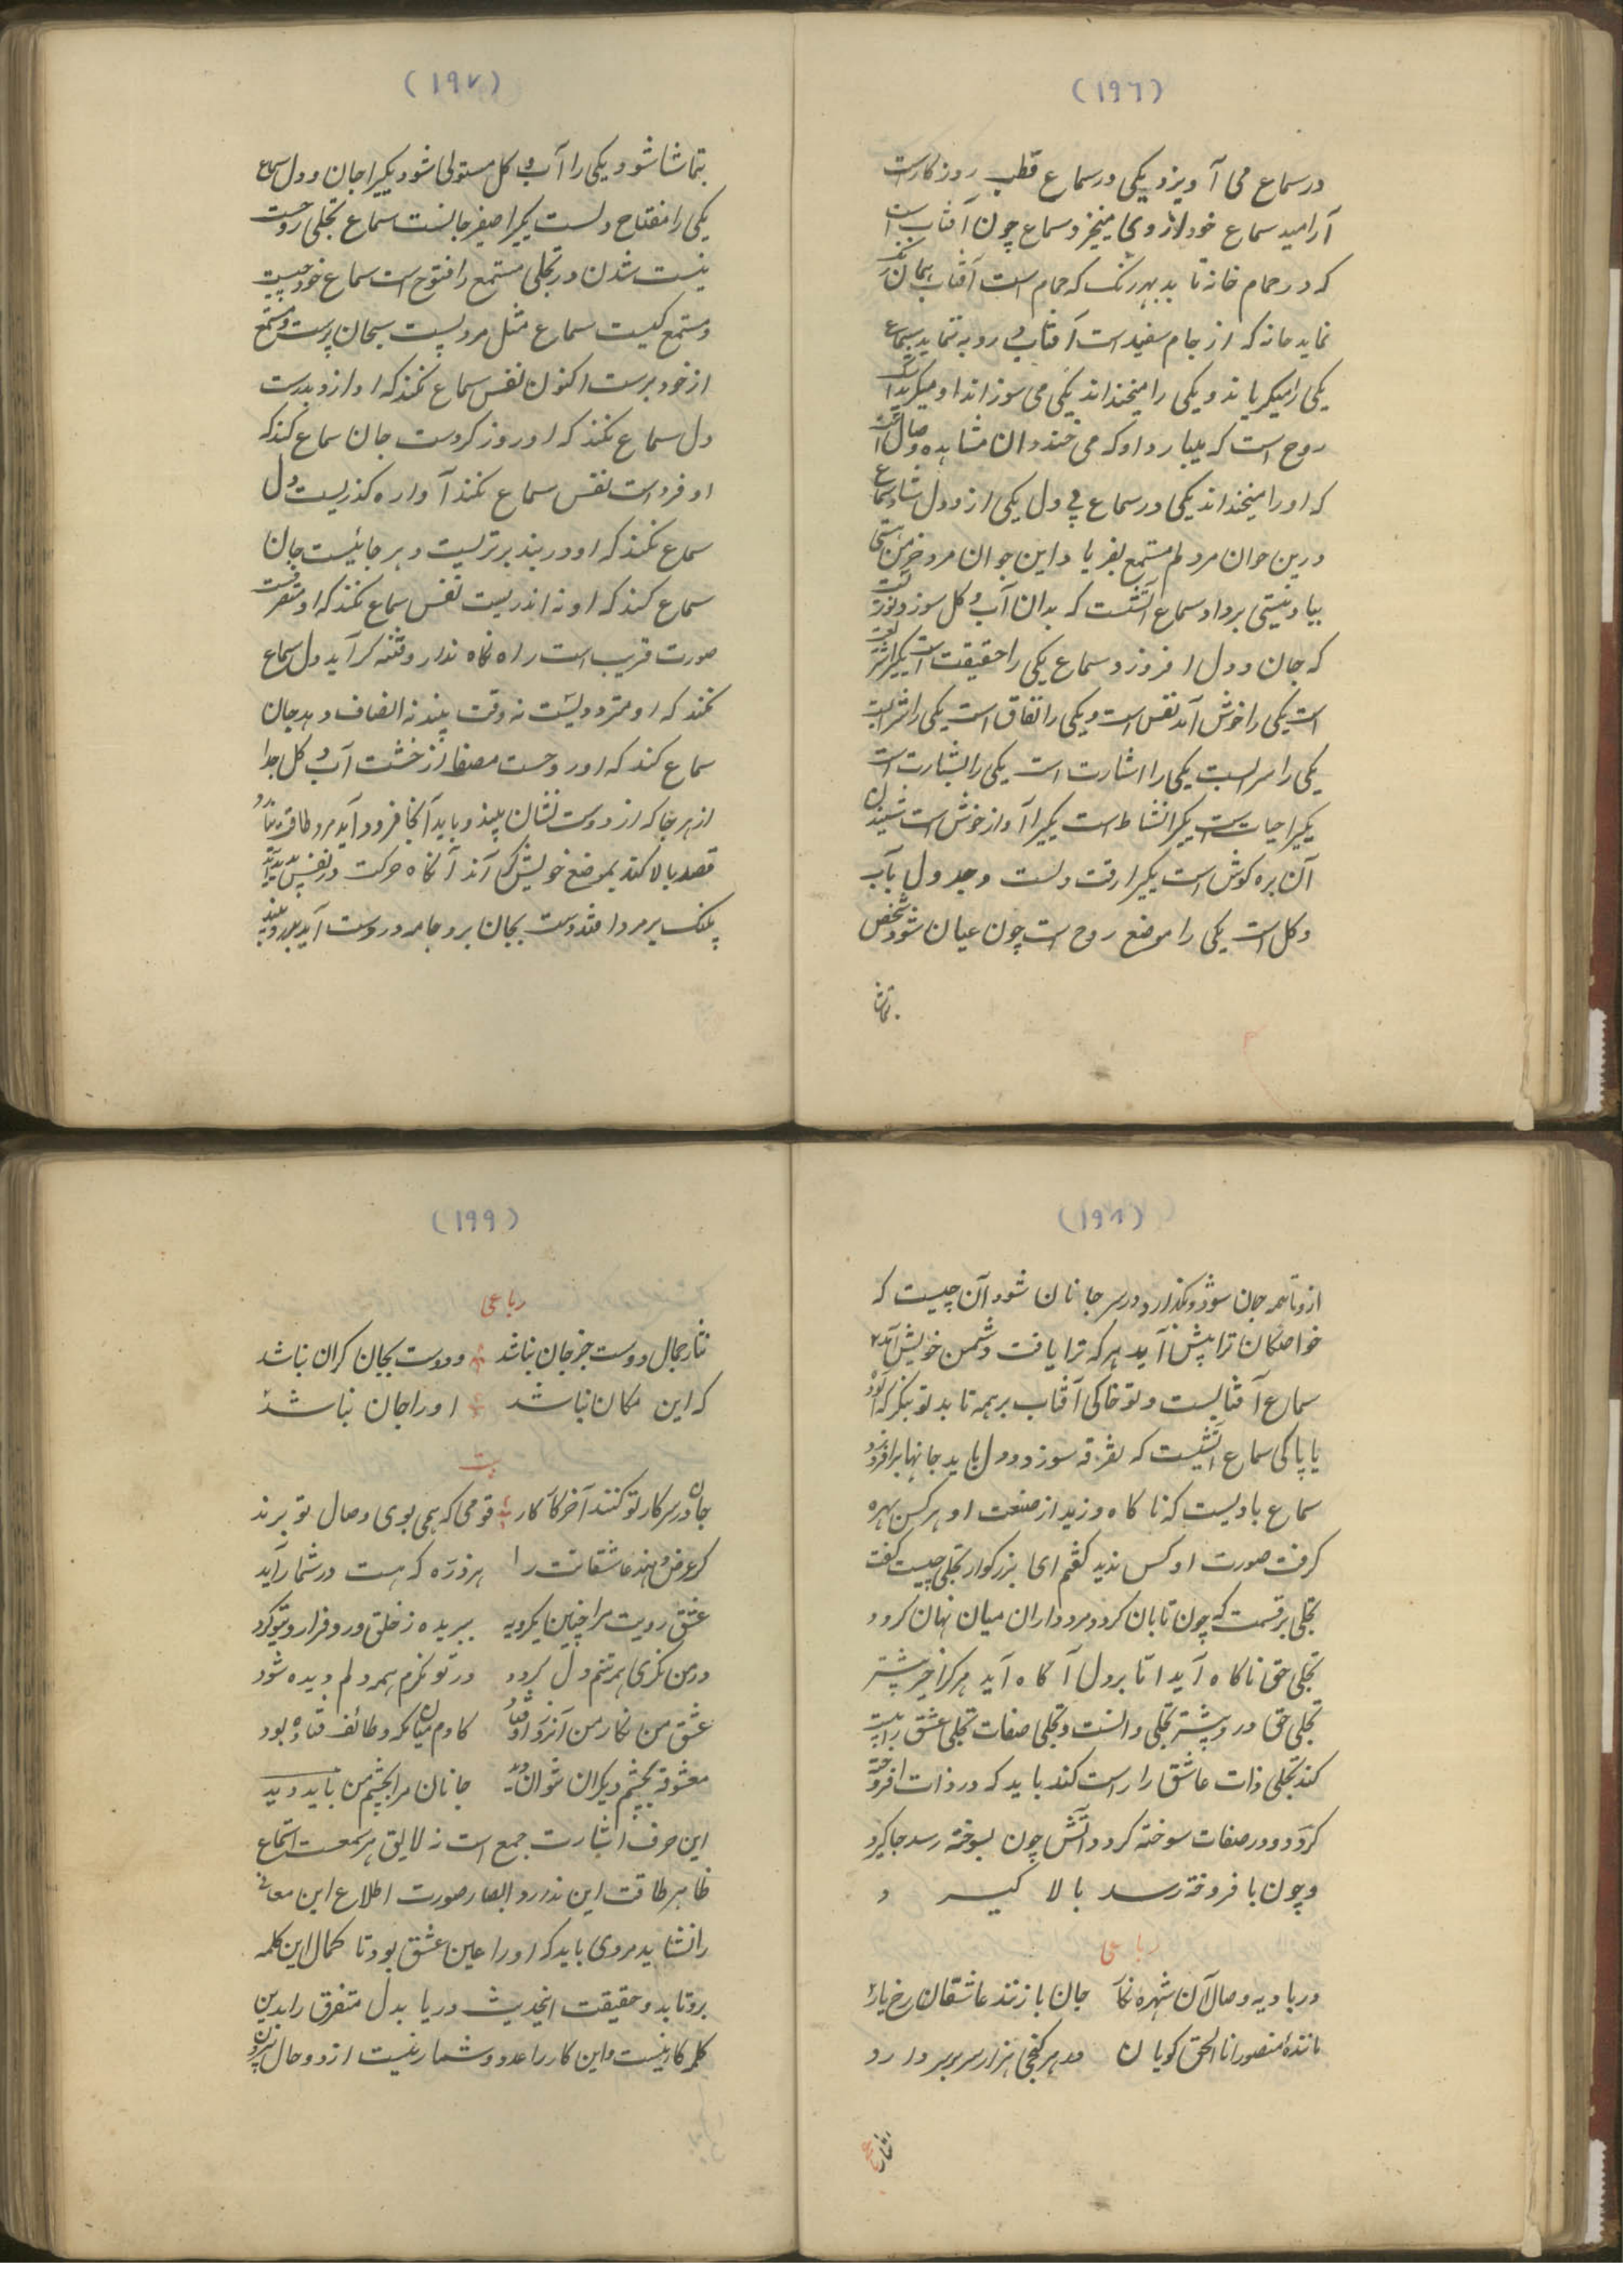 (۱۹۶)
در سماع می آویزد یکی در سماع قطب روزگارست
آرامید سماع خود لازوی میخیزد سماع چون آفتاب است
که در حمام خانه تابد بهر رنگ که حمام است آفتاب همان رنگ
نماید خانه که از جام سفید است آفتاب رو به نماید سماع
یکی را میگریاند و یکی را میخنداند یکی می سوزاند او میگرید
روح است که میبارد او که می خندد آن مشاهده وصال
که او را میخنداند یکی در سماع پی دل یکی از دو دل
درین جوان مرد لم مستمع بفر یا داین جوان مرد خرمن هستی
بباد نیستی برداد سماع آتشست که بدان آب و گل سوزد و نورست
که جان و دل افروزد سماع یکی را حقیقت است یکیرا
است یکی را خوش آمد نفس است و یکی را نفاق است یکی را
یکی را سراست یکی را اشارت است یکی را بشارت است
یکیرا حیات است یکیرا نشاط است یکیرا آواز خوش است شنیدن
آن بره گوش است یکیرا رقت دلست و جدول بآب
و گل است یکی را موضع روح است چون عیان شود شخص
بتماشا
(۱۹۷)
بتماشا شود یکی را آب و گل مستولی شود یکیرا جان و دل سماع
یکی را مفتاح دلست یکیرا صفیر جانست سماع تجلی روحست
نیست شدن در تجلی مستمع را فتوح است سماع خود چیست
و مستمع کیست سماع مثل مردیست سبحان پرست و مستمع
از خود برست اکنون نفس سماع نکند که او از دو بدست
دل سماع نکند که او روز کردست جان سماع کند که
او فردست نفس سماع نکند آواره گذریست دل
سماع نکند که او در بند برتریست و هر جائیست جان
سماع کند که او نه اندریست نفس سماع نکند که او متفرقست
صورت قریب است راه نگاه ندارد فتنه گر آید دل سماع
نکند که او متردد یست نه وقت بیند نه انصاف دهد جان
سماع کند که او روحست مصفا از خشت آب و گل جدا
از هر جا که از دوست نشان بیند و بیاید آنجا فرود آید مرد طاقت
قصد بالا کند بموضع خویش گر آند آنگاه حرکت در نفس پدید آید
پلنگ بر مرد افتد دست بجان برد جامه در دست آید
(۱۹۸)
از و تا همه جان سوزد و بگذارد و در سر جانان شود آن چیست که
خواصگان ترا پیش آید هر که ترا یافت دشمن خویش آید
سماع آفتابیست و تو خاکی آفتاب بر همه تابد تو بنگر که
یا پاکی سماع آتشیست که تفرقه سوزد و دل باید جانها برافروزد
سماع بادیست که ناگاه وزید از صنعت او هر کس بهره
گرفت صورت او کس ندید گفتم ای بزرگوار تجلی چیست گفت
تجلی برقست که چون تابان گردد مرد داران میان نهان گردد
تجلی حق ناگاه آید اتا بر دل آگاه آید هر کرا خبر بیشتر
تجلی حق در و بیشتر تجلی دانست و تجلی صفات تجلی عشق راست
کند تجلی ذات عاشق را راست کند باید که در ذات افروخته
گردد و در صفات سوخته گردد آتش چون بسوخته رسد جا گیرد
و چون با فروخته رسد بالا گیرد
رباعی
در بادیه وصال آن شهره نگار جان بازنند عاشقان رخ یار
مانندهٔ منصور انا الحق گویان در هر کنجی هزار سر بر دار
نثار
(۱۹۹)
رباعی
نثار جمال دوست جز جان نباشد و دوست بجان گران نباشد
که این مکان نباشد او را جان نباشد
بیت
جان در سر کار تو کنند آخر کار قومی که همی بوی وصال تو برند
گر عرض دهند عاشقانت را هر ذره که هست در شمار آید
عشق رویت مرا چنین یکرویه ببریده ز خلق و رو فرا روی تو کرد
در من نگری همه تنم دل گردد در تو نگرم همه دلم دیده شود
عشق من نگار من آنروز اوفتاد کادم میان مکه و طائف فتاده بود
معشوقه بچشم دیگران نتوان دید جانان مرا بچشم من باید دید
این حرف اشارت جمع است نه لایق هر سمعست استماع
ظاهر طاقت این ندارد ابصار صورت اطلاع این معانی
را نشاید مردی باید که او را عین عشق بود تا کمال این کلمه
بروتابد و حقیقت اینحدیث دریابد دل متفرق را بدین
کلمه کار نیست و این کار را عدد و شمار نیست از دو حال